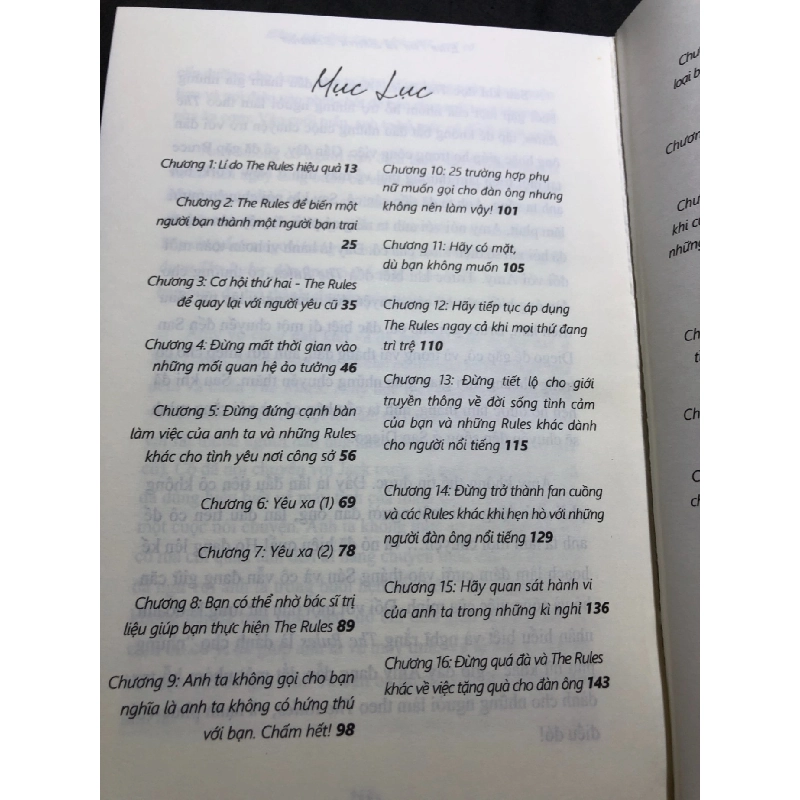 Mục Lục
Chương 1: Lí do The Rules hiệu quả 13
Chương 2: The Rules để biến một
người bạn thành một người bạn trai
25
Chương 3: Cơ hội thứ hai - The Rules
để quay lại với người yêu cũ 35
Chương 4: Đừng mất thời gian vào
những mối quan hệ ảo tưởng 46
Chương 5: Đừng đứng cạnh bàn
làm việc của anh ta và những Rules
khác cho tình yêu nơi công sở 56
Chương 6: Yêu xa (1) 69
Chương 7: Yêu xa (2) 78
Chương 8: Bạn có thể nhờ bác sĩ trị
liệu giúp bạn thực hiện The Rules 89
Chương 9: Anh ta không gọi cho bạn
nghĩa là anh ta không có hứng thú
với bạn. Chấm hết! 98
Chương 10: 25 trường hợp phụ
nữ muốn gọi cho đàn ông nhưng
không nên làm vậy! 101
Chương 11: Hãy có mặt,
dù bạn không muốn 105
Chương 12: Hãy tiếp tục áp dụng
The Rules ngay cả khi mọi thứ đang
trì trệ 110
Chương 13: Đừng tiết lộ cho giới
truyền thông về đời sống tình cảm
của bạn và những Rules khác dành
cho người nổi tiếng 115
Chương 14: Đừng trở thành fan cuồng
và các Rules khác khi hẹn hò với những
người đàn ông nổi tiếng 129
Chương 15: Hãy quan sát hành vi
của anh ta trong những kì nghỉ 136
Chương 16: Đừng quá đà và The Rules
khác về việc tặng quà cho đàn ông 143
loại b
Chương
khi c
những